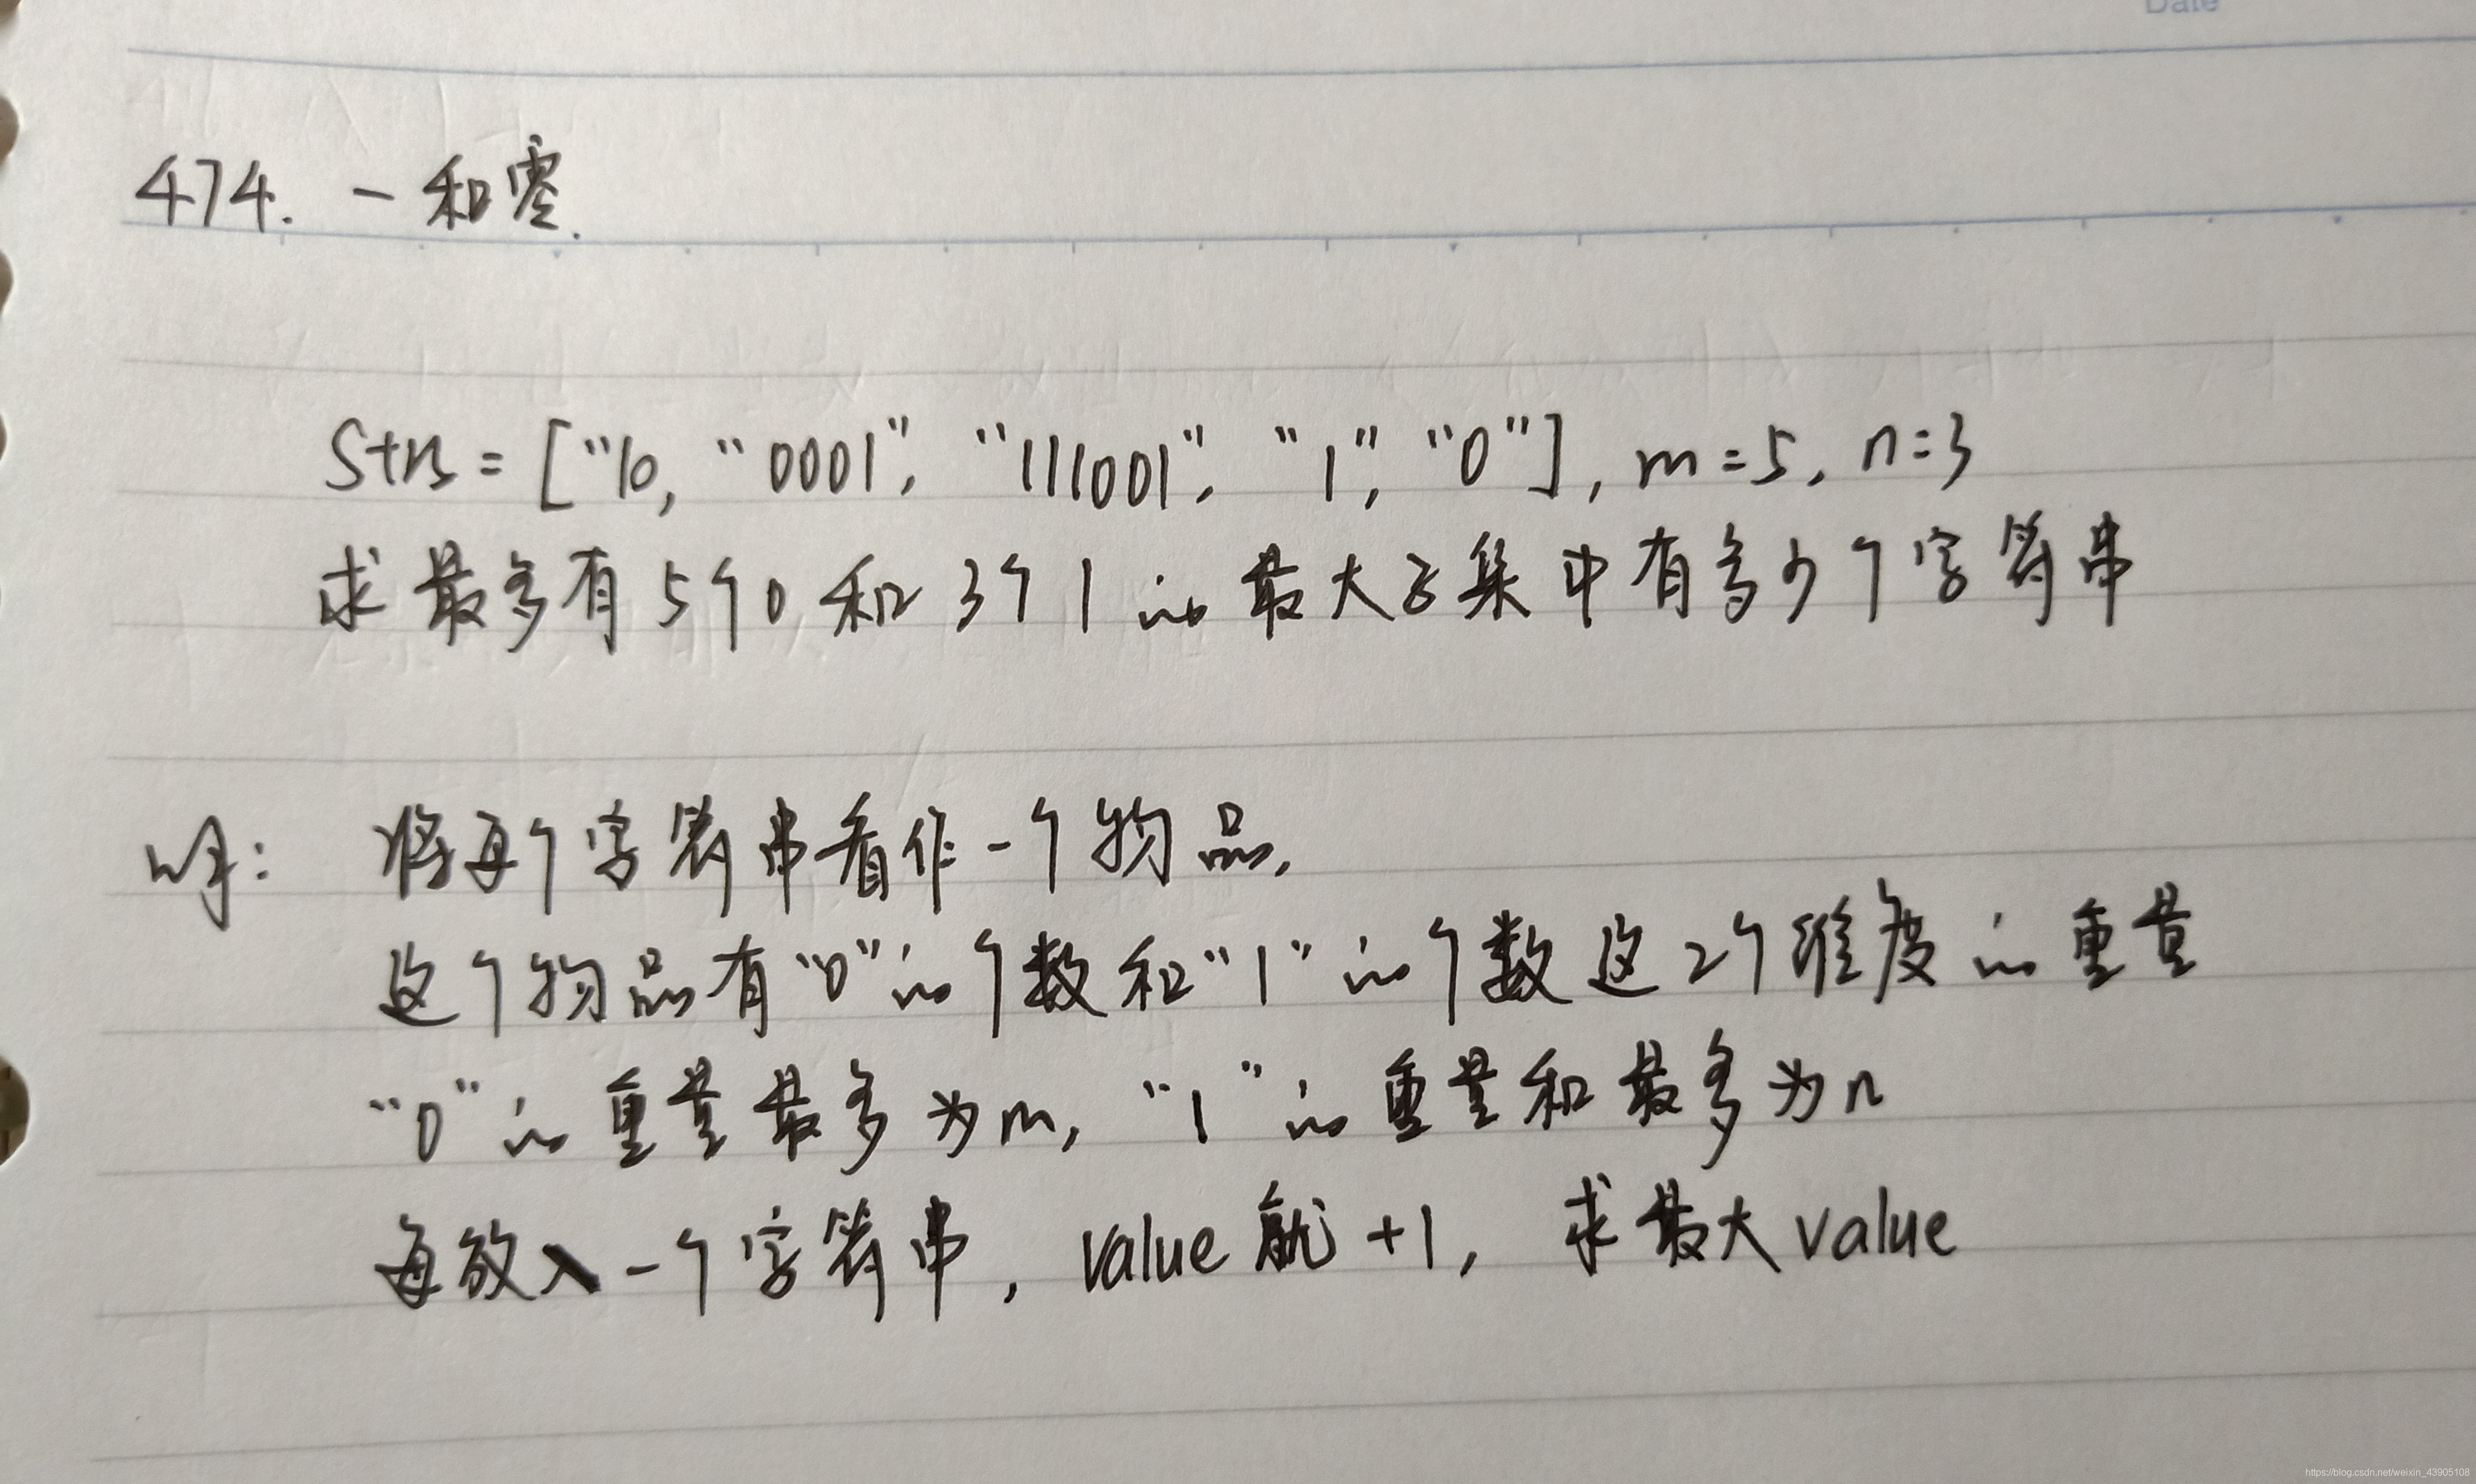 Date
474. 一和零.
Strs = ["10, "0001", "111001", "1", "0"], m=5, n=3
求最多有5个0和3个1的最大子集中有多少个字符串
将每个字符串看作一个物品,
这个物品有"0"的个数和"1"的个数这2个维度的重量
"0"的重量最多为m, "1"的重量和最多为n
每放入一个字符串, value就+1, 求最大value
https://blog.csdn.net/weixin_43905108